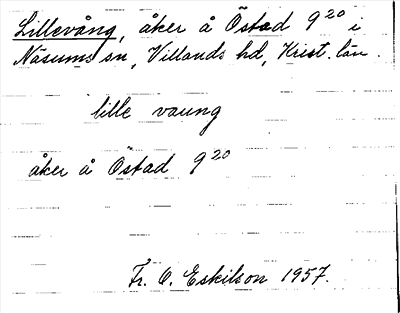 Lillevång, åker å Östad 9²⁰ i
Näsums sn, Villands hd, Krist. län.
lille vaung
åker å Östad 9²⁰
Fr. O. Eskilson 1957.